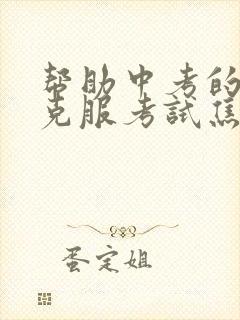 帮助中考的
克服考試焦
蛋定姐